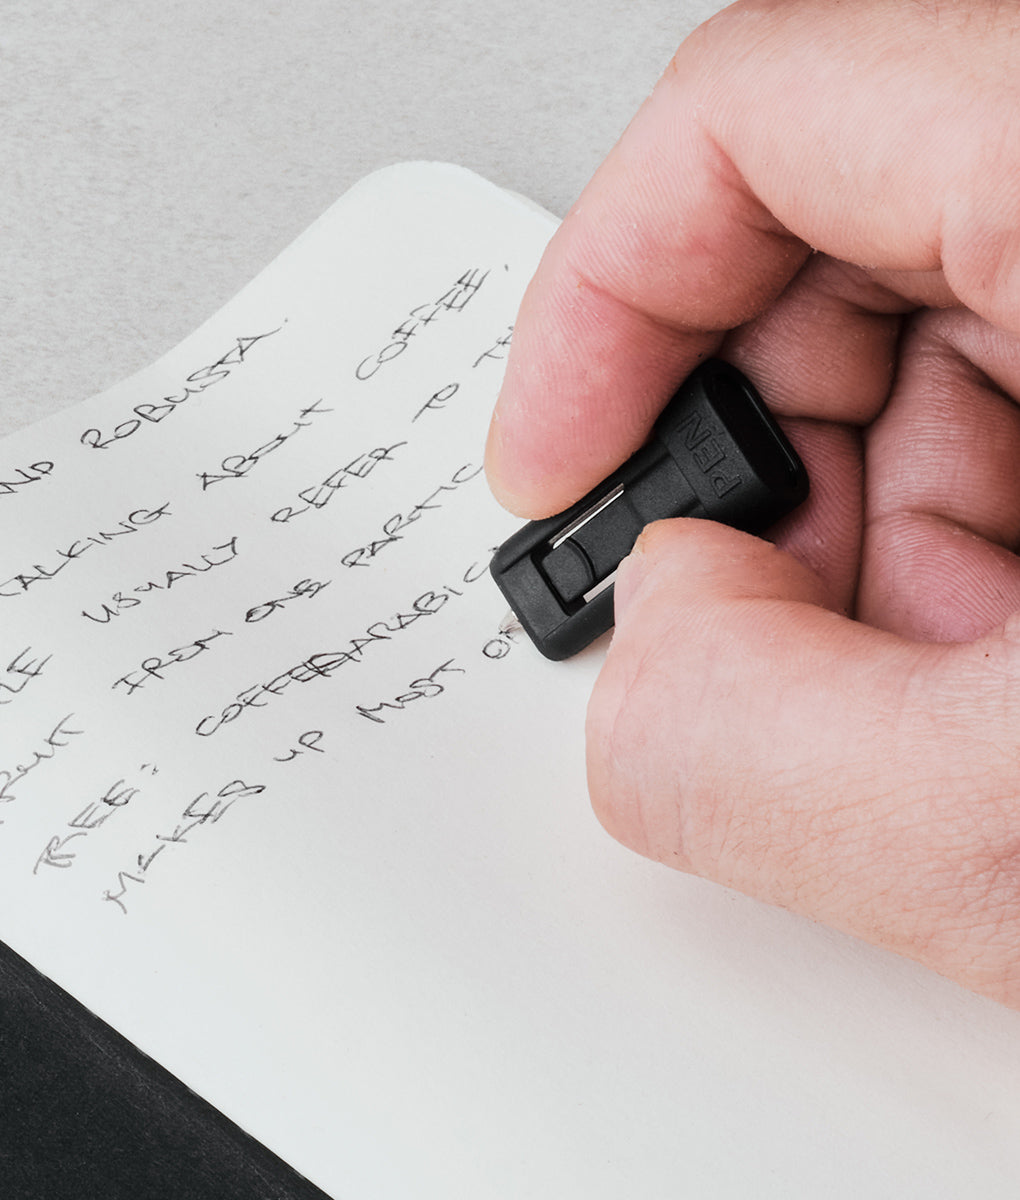 AND ROBUSTA.
TALKING ABOUT COFFEE.
PLE USUALLY REFER TO TH
FRUIT FROM ONE PARTIC
TREE: COFFEA ARABICA
MAKES UP MOST OF
PEN